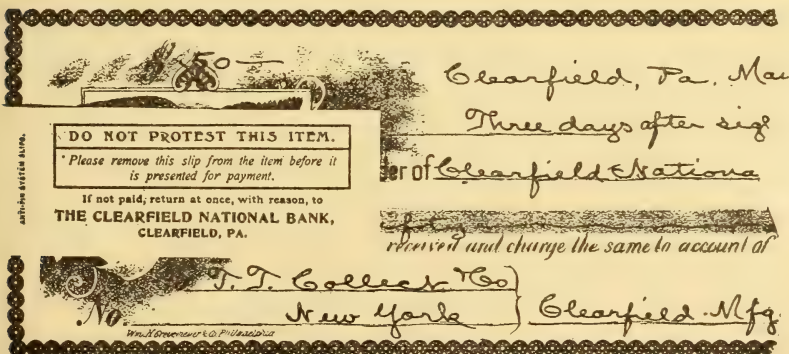 50—
Clearfield, Pa. Ma
Three days after sig
ANTI-PIN SYSTEM SLIPS.
DO NOT PROTEST THIS ITEM.
Please remove this slip from the item before it
is presented for payment.
If not paid, return at once, with reason, to
THE CLEARFIELD NATIONAL BANK,
CLEARFIELD, PA.
der of Clearfield Nationa
received and charge the same to account of
T. T. Collect Co
No. New York
Clearfield Mfg.